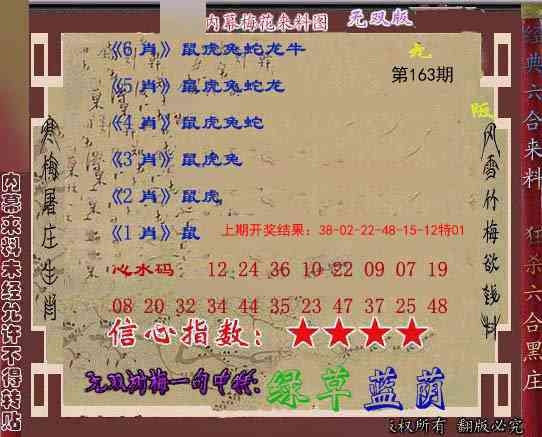 内幕梅花来料图 无双版
《6 肖》鼠虎兔蛇龙牛
《5 肖》鼠虎兔蛇龙
《4 肖》鼠虎兔蛇
《3 肖》鼠虎兔
《2 肖》鼠虎
《1 肖》鼠
第163期
上期开奖结果：38-02-22-48-15-12特01
心水码： 12 24 36 10 22 09 07 19
08 20 32 34 44 35 23 47 37 25 48
信心指数：★★★★
无双刘梅一句中特:绿草蓝荫
寒梅屠庄生肖
风雪竹梅欲钱料
内幕来料未经允许不得转贴
经典六合来料 狂杀六合黑庄
版权所有 翻版必究